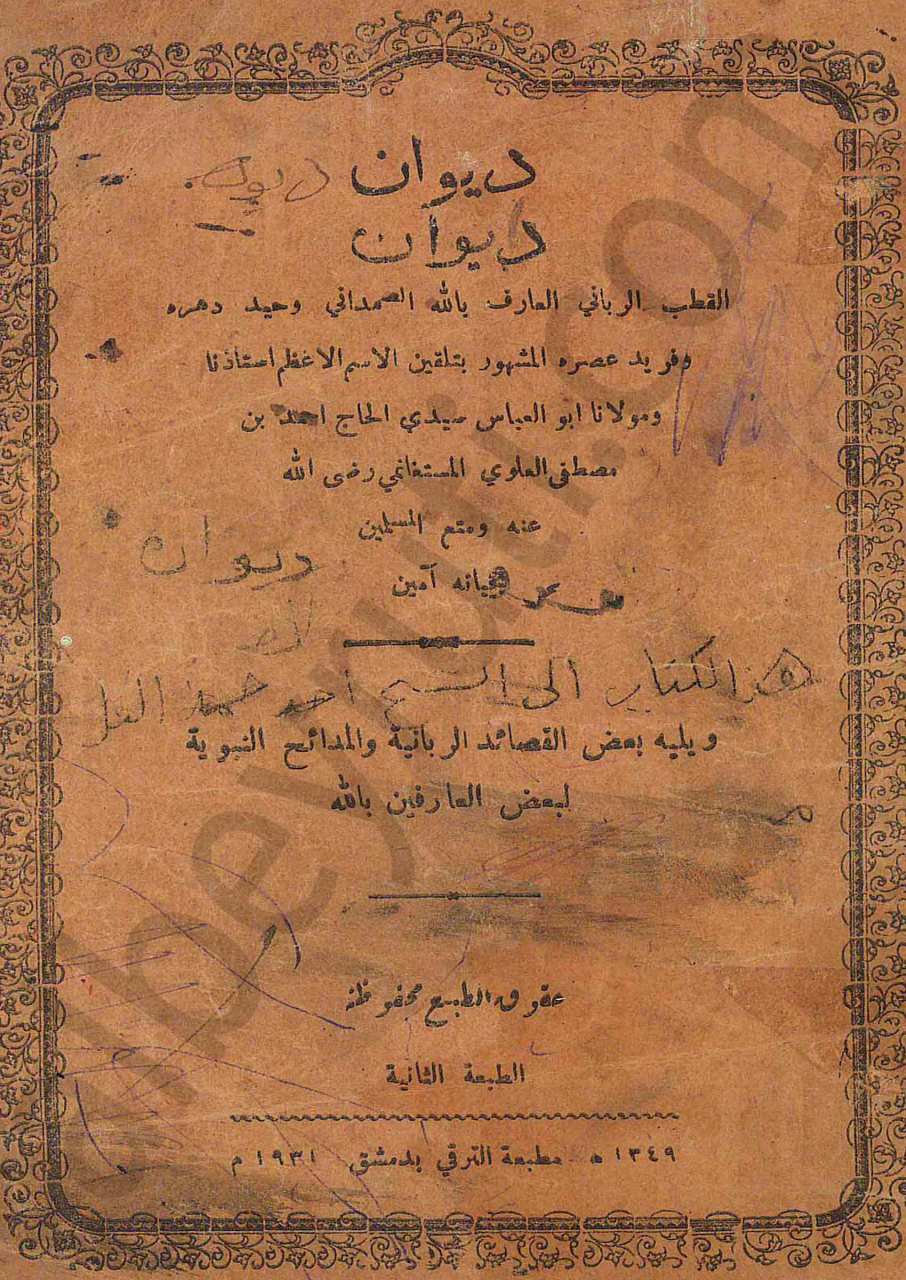 ديوان ديوان
ديوان
القطب الرباني العارف بالله الصمداني وحيد دهره
وفريد عصره المشهور بتلقين الاسم الاعظم استاذنا
ومولانا ابو العباس سيدي الحاج احمد بن
مصطفى العلوي المستغانمي رضى الله
عنه ومتع المسلمين
ديوان
بحياته آمين
هذا الكتاب الى الشيخ احمد
ويليه بعض القصائد الربانية والمدائح النبوية
لبعض العارفين بالله
حقوق الطبع محفوظة
الطبعة الثانية
١٣٤٩ ه مطبعة الترقي بدمشق ١٩٣١ م